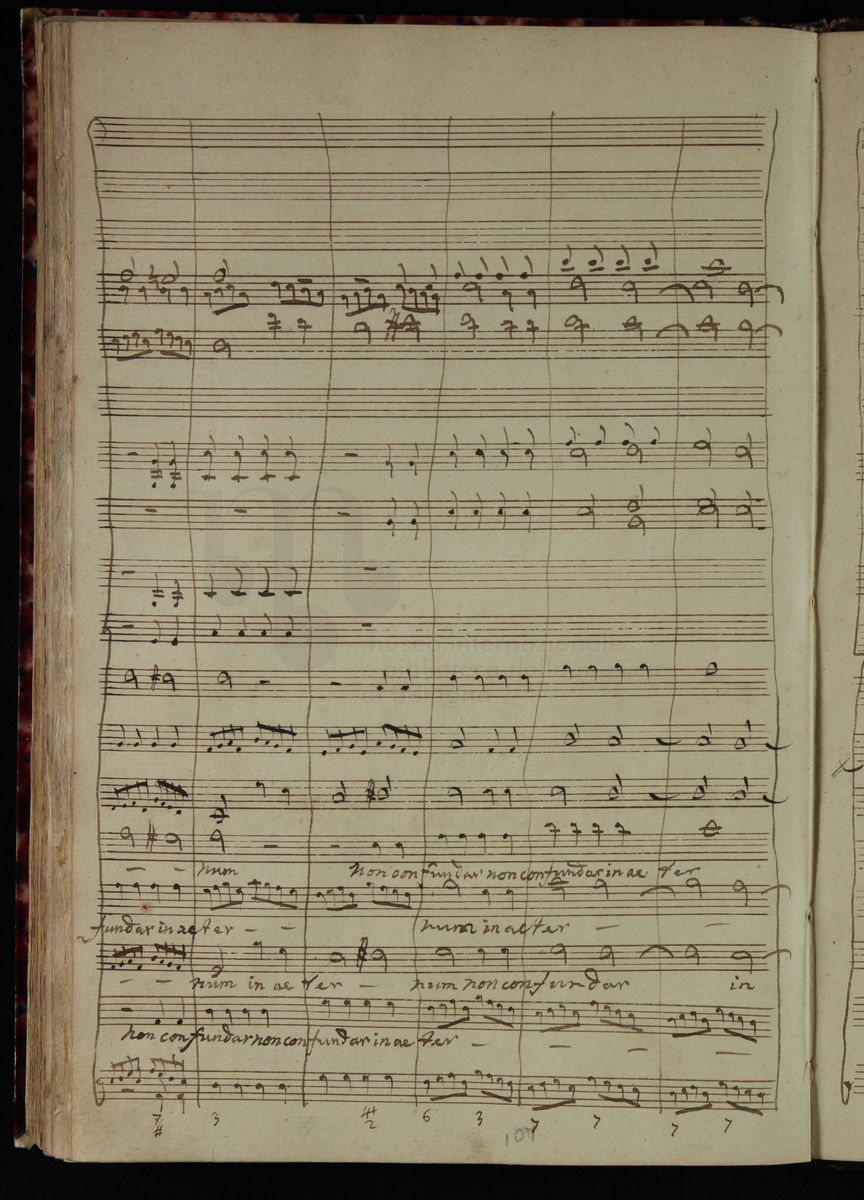 num non confundar non confundar in ae ter
fundar in ae ter num in aeter
num in ae ter num non confundar in
non confundar non confundar in ae ter
7 3 4+ 6 3 7 7 7 7
# 2
107
museo internazionale